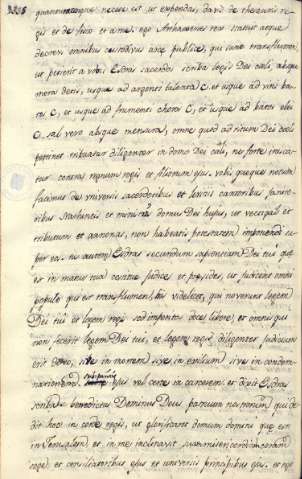 quantumcunque necesse est ut expendas, dabis de thesauris re
gis et de fisco et a me. ego Artaxerxes rex statui atque
decrevi omnibus custodibus arce publice, qui sunt trans flumen
ut petierit a vobis Esdras sacerdos scriba legis Dei coeli, absque
mora detis, usque ad argenti talenta C, et usque ad vini batos
C, et usque ad frumenti choros C, et usque ad batos olei
C. sal vero absque mensura, omne quod ad ritum Dei coeli
pertinet tribuatur diligenter in domo Dei coeli, ne forte irasca
tur contra regnum regis et filiorum ejus. vobis quoque notum
facimus de universis sacerdotibus et levitis cantoribus janito
ribus Nathineis et ministris domus Dei hujus, ut vectigal et
tributum et annonas, non habeatis potestatem imponendi su
per eos. tu autem Esdras secundum sapientiam Dei tui que
est in manu tua constitue judices et presides, ut judicent omni
populo qui est trans flumen, his videlicet, qui noverunt legem
Dei tui et legem regis sed imperitos docete libere, et omnis qui
non fecerit legem Dei tui, et legem regis diligenter judicium
erit de eo, sive in mortem sive in exilium sive in condem
nationem substantie ejus vel certe in carcerem et dixit Esdras
scriba benedictus Dominus Deus patrum nostrorum qui de
dit hoc in corde regis, ut glorificaret domum domini que est
in Jerusalem et in me inclinavit misericordiam coram
rege et consiliatoribus ejus et universis principibus ejus. et ego